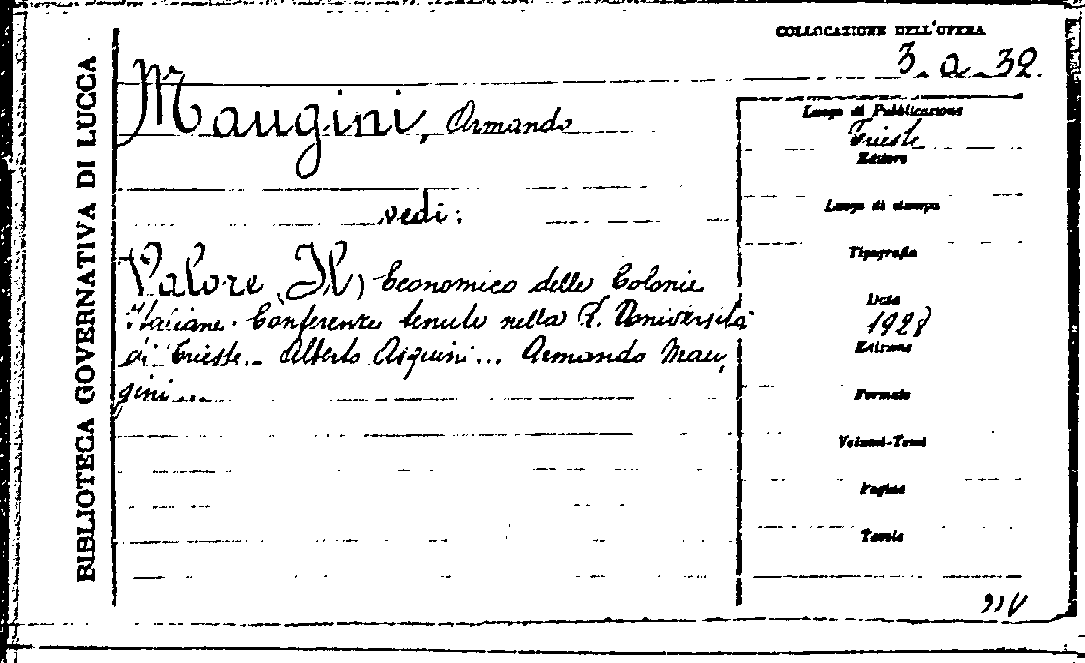 BIBLIOTECA GOVERNATIVA DI LUCCA
COLLOCAZIONE DELL'OPERA
3. a. 32.
Maugini, Armando
vedi:
Valore (Il) Economico delle Colonie
Italiane. Conferenze tenute nella R. Università
di Trieste._ Alberto Asquini... Armando Mau,
gini...
Luogo di Pubblicazione
Trieste
Editore
Luogo di stampa
Tipografia
Data
1928
Edizione
Formato
Volumi-Tomi
Pagine
Tavole